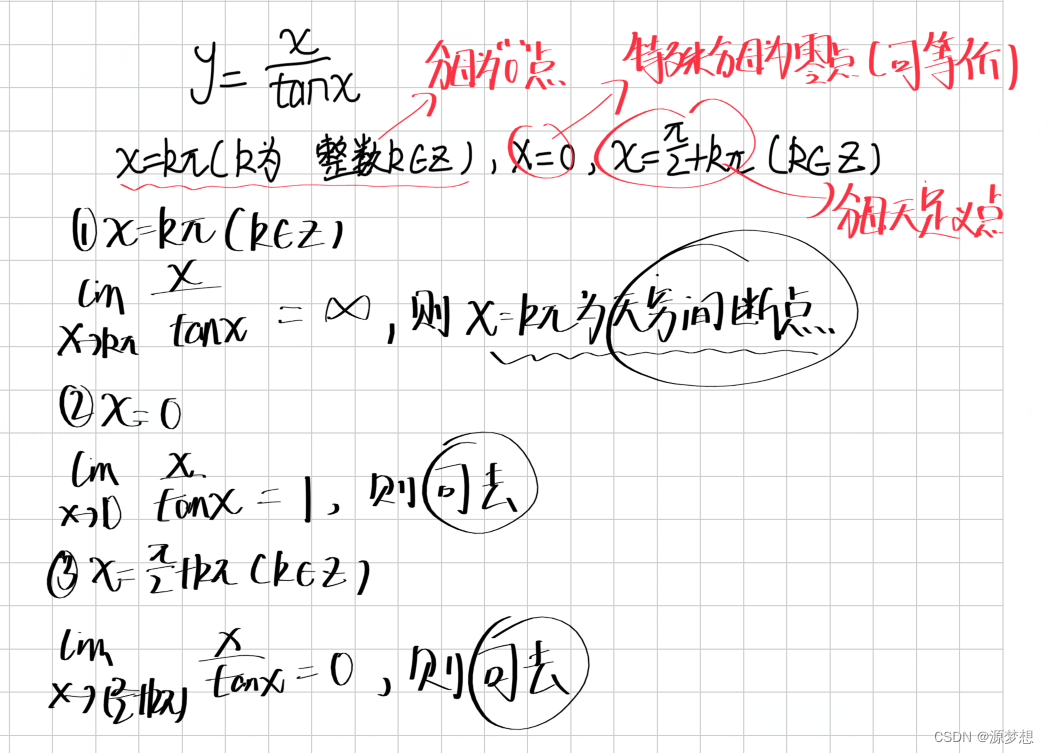 y = x/tanx
分母为“0”点
特殊分母为零点(可等价)
x=kπ(k为 整数k∈Z), x=0, x=π/2+kπ(k∈Z)
分母无定义点
①x=kπ(k∈Z)
lim x→kπ x/tanx = ∞, 则 x=kπ为无穷间断点.
②x=0
lim x→0 x/tanx = 1, 则可去
③x=π/2+kπ(k∈Z)
lim x→(π/2+kπ) x/tanx = 0, 则可去
CSDN @源梦想